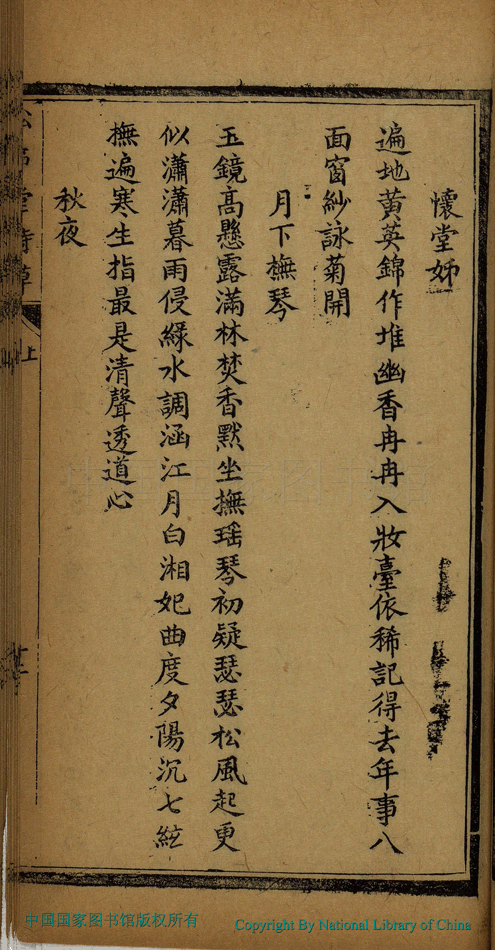 懷堂姊
遍地黃英錦作堆幽香冉冉入妝臺依稀記得去年事八
面窗紗詠菊開
月下撫琴
玉鏡高懸露滿林焚香默坐撫瑶琴初疑瑟瑟松風起更
似瀟瀟暮雨侵綠水調涵江月白湘妃曲度夕陽沉七絃
撫遍寒生指最是清聲透道心
秋夜
上
中国国家图书馆版权所有
Copyright By National Library of China